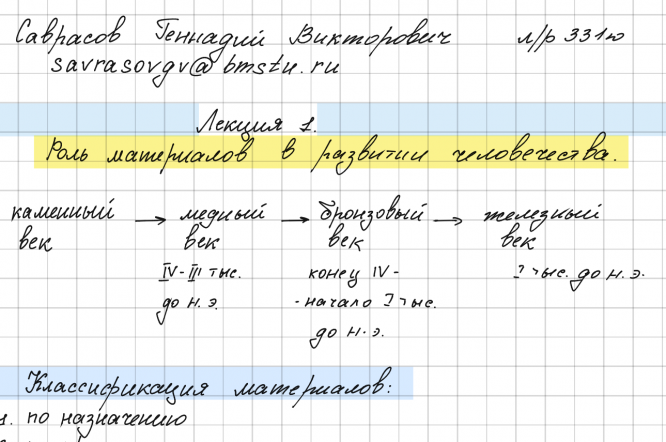 Саврасов Геннадий Викторович л/р 331ю
savrasovgv@bmstu.ru
Лекция 1.
Роль материалов в развитии человечества.
каменный век → медный век → бронзовый век → железный век
IV-III тыс. до н.э.
конец IV-
-начало I тыс.
до н.э.
I тыс. до н.э.
Классификация материалов:
1. по назначению